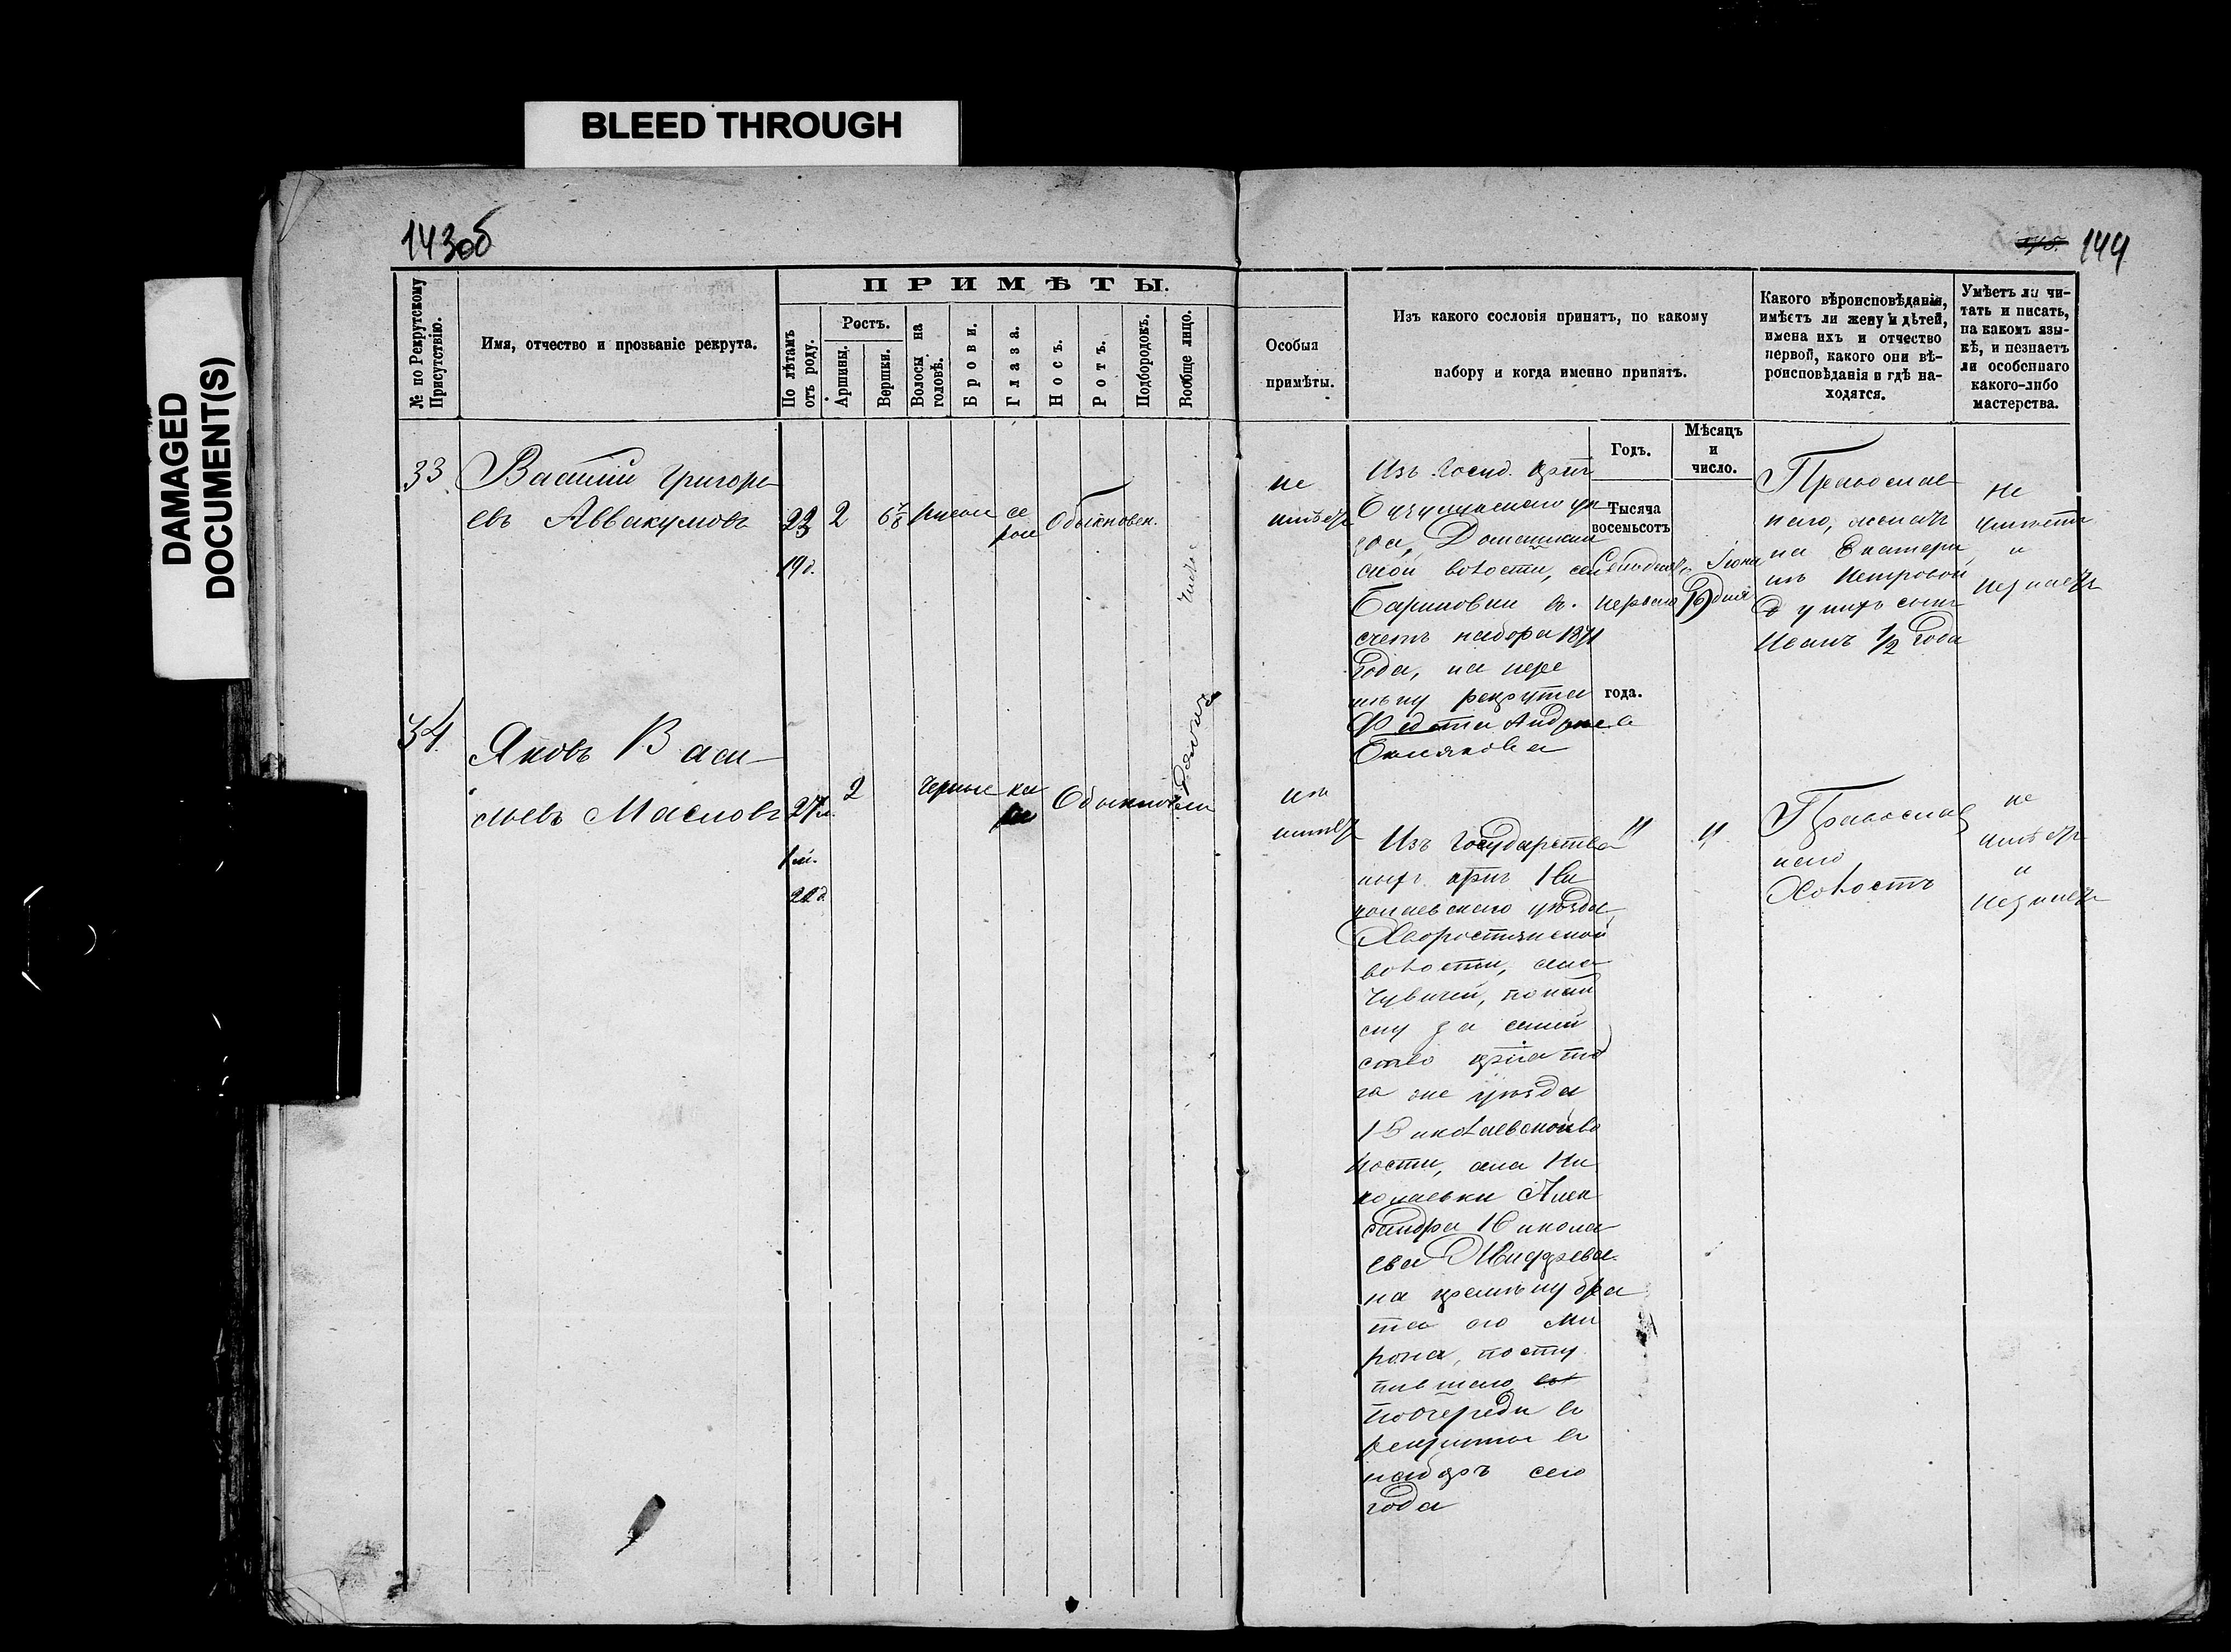 BLEED THROUGH
DAMAGED
DOCUMENT(S)
143об
144
№ по Рекрутскому
Присутствію.
Имя, отчество и прозваніе рекрута.
ПРИМѢТЫ.
По лѣтамъ
отъ роду.
Ростъ.
Аршины.
Вершки.
Волосы на
головѣ.
Брови.
Глаза.
Носъ.
Ротъ.
Подбородокъ.
Вообще лицо.
Особыя
примѣты.
Изъ какого сословія принятъ, по какому
набору и когда именно принятъ.
Какого вѣроисповѣданія,
имѣетъ ли жену и дѣтей,
имена ихъ и отчество
первой, какого они вѣ-
роисповѣданія и гдѣ на-
ходятся.
Умѣетъ ли чи-
тать и писать,
на какомъ язы-
кѣ, и незнаетъ
ли особеннаго
какого-либо
мастерства.
Годъ.
Мѣсяцъ
и
число.
Тысяча
восемьсотъ
года.
33
Василій Григорь
евъ Аввакумовъ
23
19 д.
2
6 7/8
русые
се
рые
Обыкновен.
чистое
не
имѣетъ
Изъ Госуд. крест
Бузулукскаго уѣ
зда, Домашкин
ской волости, села
Бариновки въ
счетъ набора 1871
года, на пере
мѣну рекрута
Федота Андреева
Семьдесятъ
перваго
Іюня
19 дня
Православ
наго, женатъ
на Екатери
нѣ Петровой
у нихъ сынъ
Иванъ 1/2 года
Не
умѣетъ
и
незнаетъ
34
Яковъ Васи
льевъ Масловъ
27 л.
1 м.
22 д.
2
черные
ка
ріе
Обыкновен
не
имѣетъ
Изъ Государствен
ныхъ крест Ни
колаевскаго уѣзда,
Хворостянской
волости, села
Чувичей, по най
му за семей
ство крест то
го же уѣзда
Николаевской во
лости, села Ни
колаевки Алек
сандра Никола
ева
на премѣну бра
та его Ми
рона, посту
пившаго въ
по очереди въ
рекруты въ
наборъ сего
года
"
"
Православ
наго
Холостъ
не
умѣетъ
и
незнаетъ